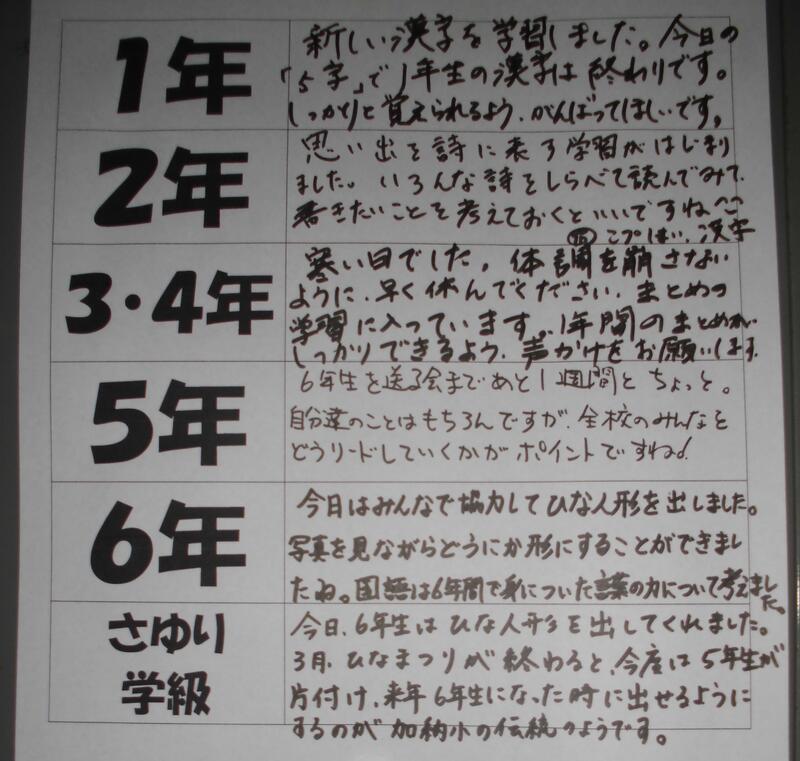 1年
新しい漢字を学習しました。今日の
「5字」で1年生の漢字は終わりです。
しっかりと覚えられるよう、がんばってほしいです。
2年
思い出を詩に表す学習がはじまり
ました。いろんな詩をしらべて読んでみて、
書きたいことを考えておくといいですね^^
コプしはい、漢字
3・4年
寒い日でした。体調を崩さない
ように、早く休んでください。まとめの
学習に入っています。1年間のまとめが
しっかりできるよう、声かけをお願いします。
5年
6年生を送る会まであと1週間とちょっと。
自分達のことはもちろんですが、全校のみんなを
どうリードしていくかがポイントですね!
6年
今日はみんなで協力してひな人形を出しました。
写真を見ながらどうにか形にすることができまし
たね。国語は6年間で身についた言葉の力について考えまし
た。
さゆり
学級
今日、6年生はひな人形を出してくれました。
3月、ひなまつりが終わると、今度は5年生が
片付け、来年6年生になった時に出せるように
するのが加納小の伝統のようです。